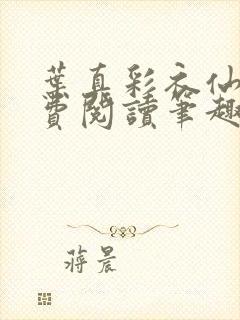 葉真彩衣仙
費閱讀筆趣
蔣晨